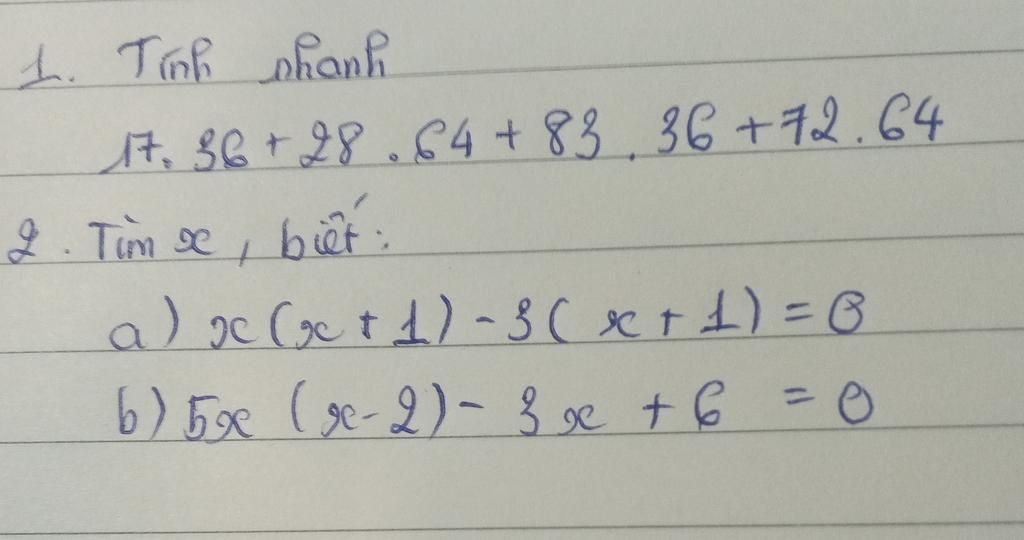 1. Tính nhanh
17. 36 + 28 . 64 + 83 . 36 + 72 . 64
2. Tìm x, biết:
a) x(x + 1) - 3( x + 1) = 0
b) 5x (x - 2) - 3x + 6 = 0